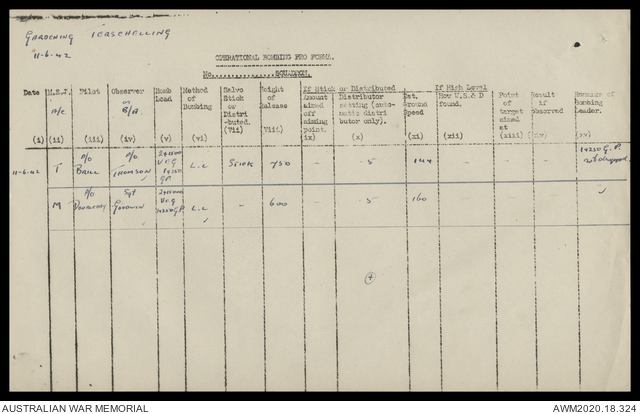 GARDENING TERSCHELLING
11-6-42
OPERATIONAL BOMBING PRO FORMA.
No. SQUADRON.
Date M.S.I. Pilot Observer Bomb Method Salvo Height If Stick or Distributed Est. If High Level Point Result Remarks of
A/C or B/A. Load of Bombing Stick or Distri-buted. of Release Amount aimed off aiming point. Distributor setting (automatic distributor only). Ground Speed How U.S.& D found. of target aimed at if observed Bombing Leader.
(i) (ii) (iii) (iv) (v) (vi) (Vii) Viii) ix) (x) (xi) (xii) (xiii) (xv)
11-6-42 T P/O BRILL P/O THOMSON G.P. L.L STICK 750 - 5 144 - - - 14250 G.P.
M P/O Sgt GOODWIN L.L - 600 - 5 160 - - -
4
AUSTRALIAN WAR MEMORIAL
AWM2020.18.324